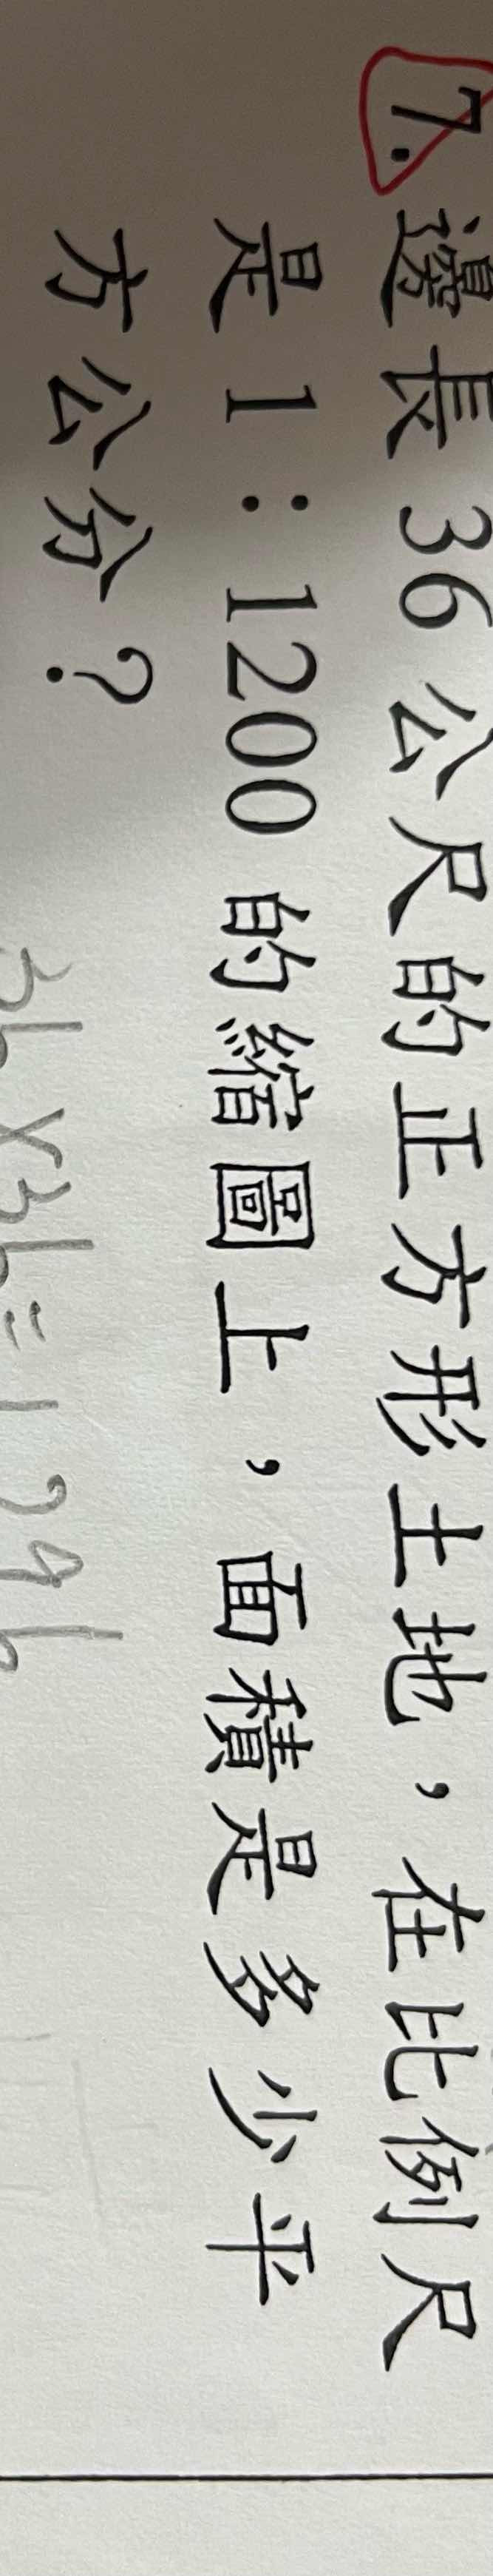 7. 邊長 36 公尺的正方形土地，在比例尺
是 1：1200 的縮圖上，面積是多少平
方公分？
36×36=1296